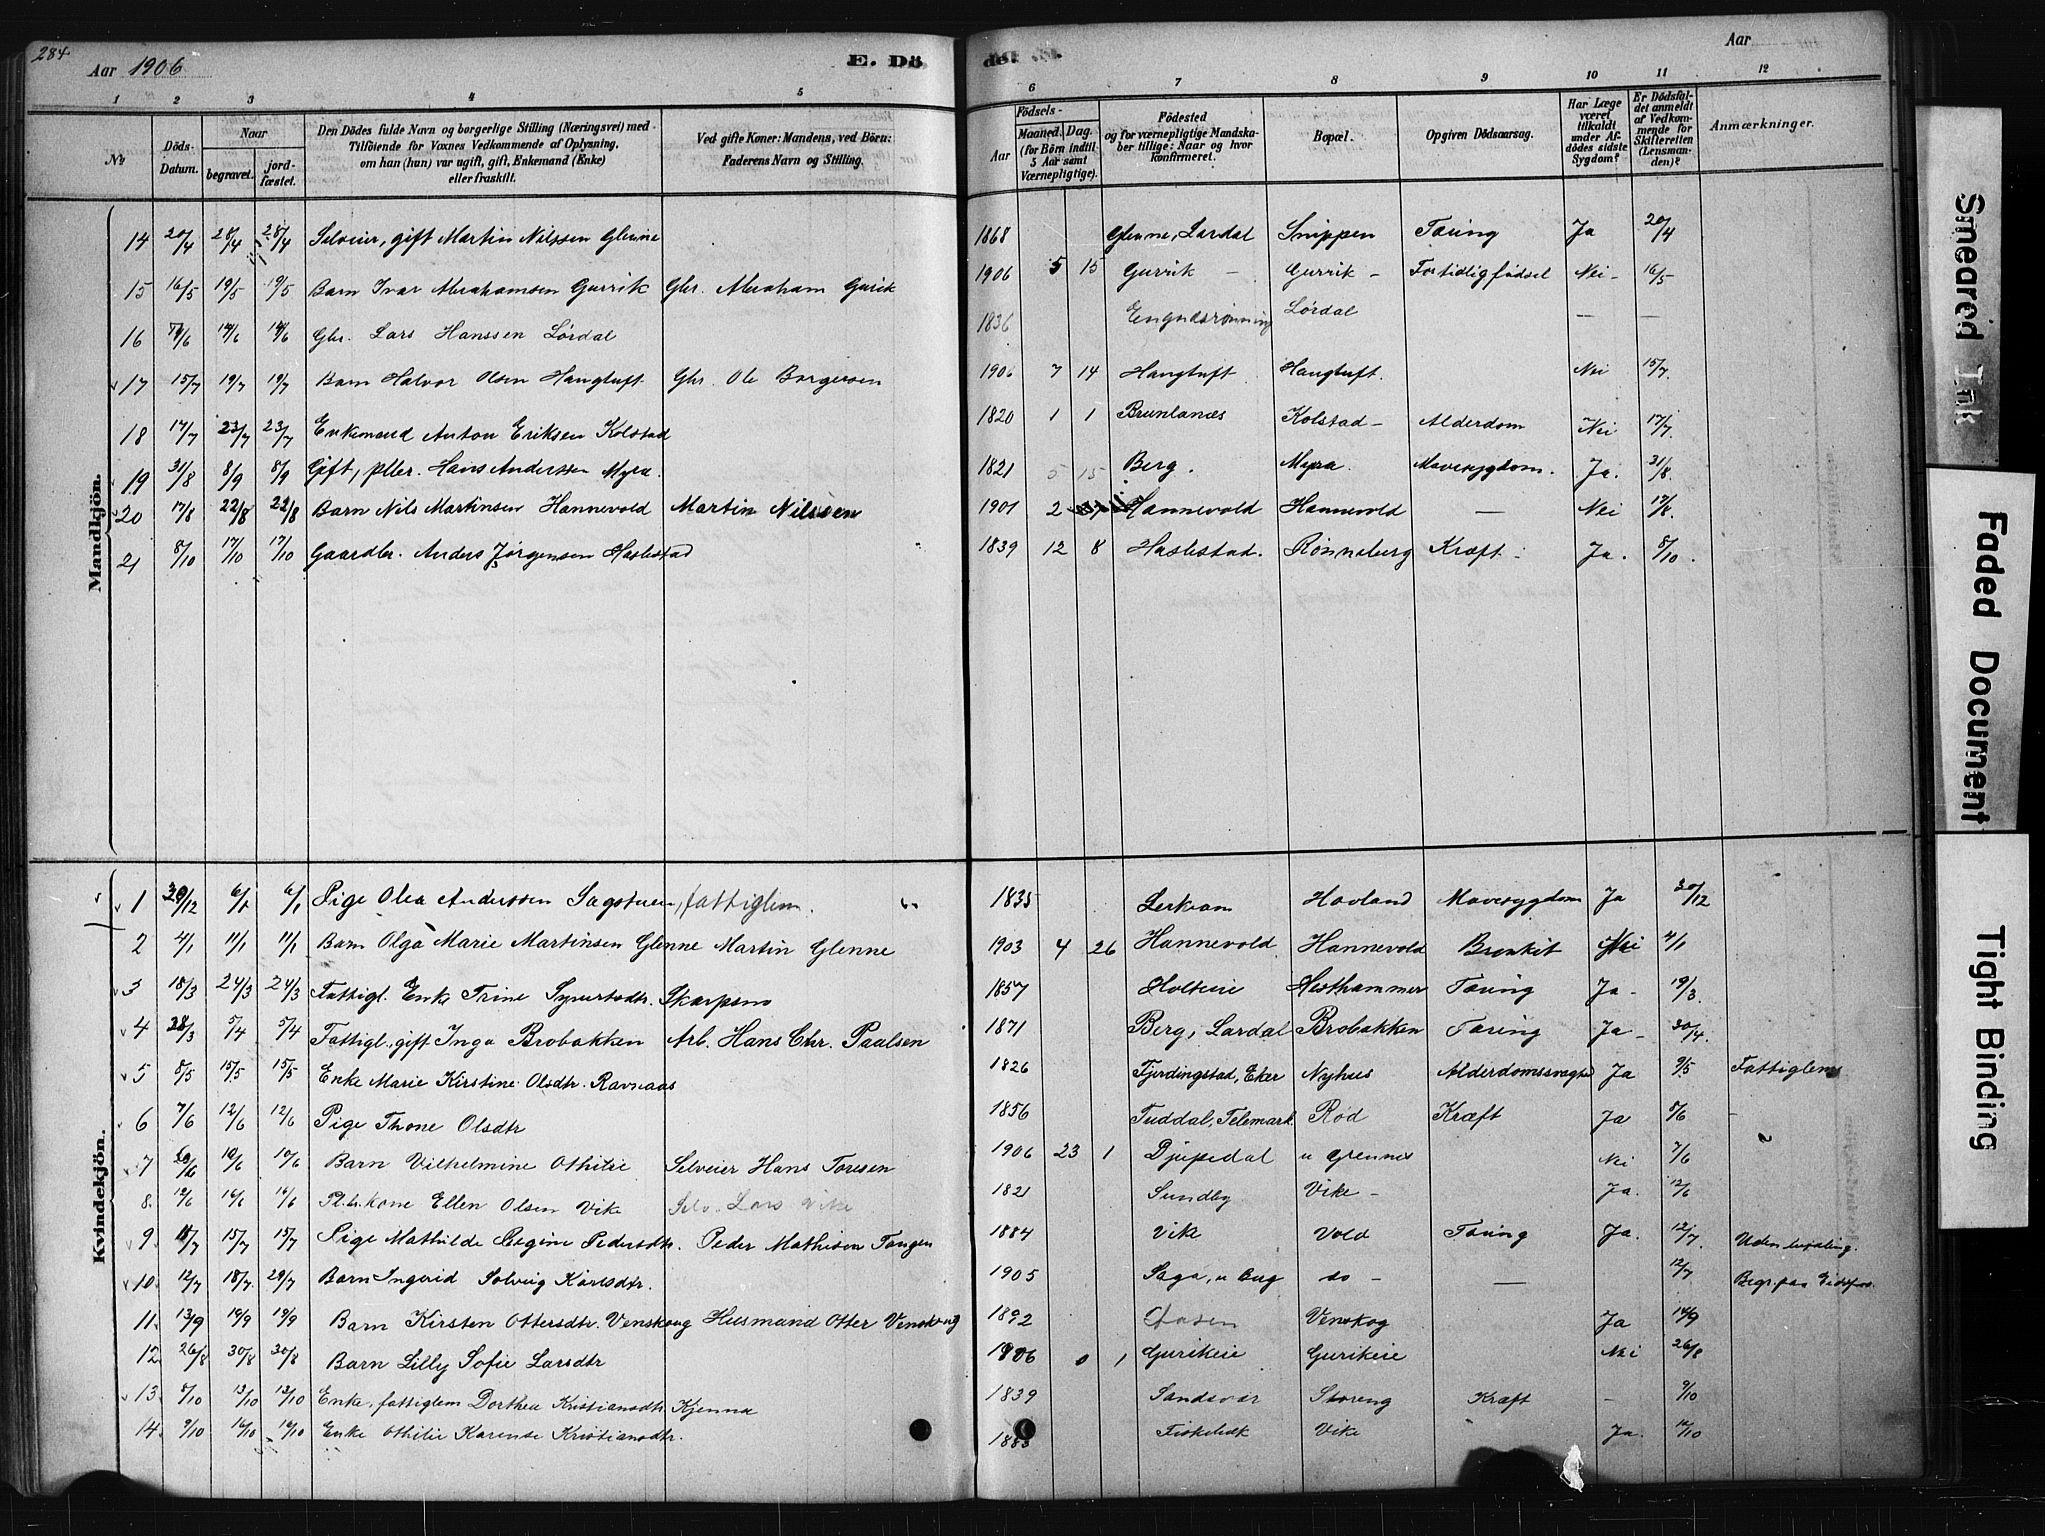 284
Aar 1906
E. Dö
de. E.
Aar
1 2 3 4 5 6 7 8 9 10 11 12
No
Döds-Datum.
Naar
begravet.
jord-fæstet.
Den Dödes fulde Navn og borgerlige Stilling (Næringsvei) med
Tilföiende for Voxnes Vedkommende af Oplysning,
om han (hun) var ugift, gift, Enkemand (Enke)
eller fraskilt.
Ved gifte Koner: Mandens, ved Börn:
Faderens Navn og Stilling.
Födsels-
Aar
Maaned. Dag.
(for Börn indtil
5 Aar samt
Værnepligtige).
Födested
og for værnepligtige Mandska-
ber tillige: Naar og hvor
konfirmeret.
Bopæl.
Opgiven Dödsaarsag.
Har Læge
været
tilkaldt
under Af-
dödes sidste
Sygdom?
Er Dödsfal-
det anmeldt
af Vedkom-
mende for
Skifteretten
(Lensman-
den)?
Anmærkninger.
Mandkjön.
14 20/4 28/4 28/4 Selveier, gift Martin Nilssen Glenne 1868 Glenne, Lardal Snippen Tæring Ja 20/4
15 16/5 19/5 19/5 Barn Ivar Abrahamsen Gurrik Gbr. Abraham Gurik 1906 5 15 Gurrik – Gurrik – For tidlig födsel Nei – 16/5
16 14/6 14/6 Gbr. Lars Hanssen Lørdal 1836 Lørdal — —
17 15/7 19/7 19/7 Barn Halvor Olsen Hangtuft Gbr. Ole Borgersen 1906 7 14 Hangtuft Hangtuft. Nei 15/7.
18 17/7 23/7 23/7 Enkemand Anton Eriksen Kolstad 1820 1 1 Brunlanæs Kolstad – Alderdom Nei 17/7.
19 31/8 8/9 8/9 Gift, pller. Hans Anderssen Myra. 1821 5 15 Berg. Myra. Mavesygdom. Ja. 31/8.
20 17/8 22/8 22/8 Barn Nils Martinsen Hannevold Martin Nilssen 1901 2 Hannevold Hannevold — Nei 17/8.
21 8/10 17/10 17/10 Gaardbr. Anders Jörgensen Haslestad 1839 12 8 Haslestad. Rønneberg Kræft – Ja. 8/10.
Kvindekjön.
1 30/12 6/1 6/1 Pige Olea Anderssen Sagstuen, fattiglem. 1835 Lerkam Hovland Mavesygdom Ja 30/12
2 4/1 11/1 11/1 Barn Olga Marie Martinsen Glenne Martin Glenne 1903 4 26 Hannevold Hannevold Bronkit Nei 4/1
3 18/3 24/3 24/3 Fattigl. Enk Trine Syvertsdtr. Skarpsno 1857 Holteie Hesthammer Tæring Ja – 19/3.
4 28/3 5/4 5/4 Fattigl. gift Inga Brobakken Arb. Hans Chr. Paalsen 1871 Berg, Lardal Brobakken Tæring Ja – 30/4.
5 8/5 15/5 15/5 Enke Marie Kirstine Olsdtr. Ravnaas 1826 Fjerdingstad, Eker Nyhus Alderdomssvaghed Ja 9/5 Fattiglem
6 7/6 12/6 12/6 Pige Thone Olsdtr 1856 Tuddal, Telemark Rød Kræft Ja 8/6 –
7 10/6 10/6 Barn Vilhelmine Othilie Selveier Hans Toresen 1906 23 1 Djupedal u Grennes Nei 7/6
8. 12/6 16/6 16/6 Pl.br.kone Ellen Olsen Vike Selv. Lars Vike 1821 Sundby Vike – Ja. 12/6
9. 11/7 15/7 15/7 Pige Mathilde Regine Pedersdtr. Peder Mathisen Tangen 1884 Vike Vold Tæring Ja. 12/7. Uden betaling.
10. 12/7 18/7 29/7 Barn Ingerid Solveig Karlsdtr. 1905 Saga, u Berg do – — 12/7 Begr. paa Eidsfos.
11. 13/9 19/9 19/9 Barn Kirsten Ottersdtr. Venskoug Husmand Otter Venskoug 1892 Aasen Venskog Ja 14/9
12. 26/8 30/8 30/8 Barn Lilly Sofie Larsdtr 1906 0 1 Gurikeie Gurikeie Nei 26/8
13. 8/10 13/10 13/10 Enke, fattiglem Dorthea Kristiansdtr Kjenna 1839 Sandsvær Storeng Kræft – 9/10
14. 9/10 16/10 16/10 Enke Othilie Karense Kristiansdtr. 1883 Fiskebæk Vike Ja. 12/10
Smeared Ink
Faded Document
Tight Binding